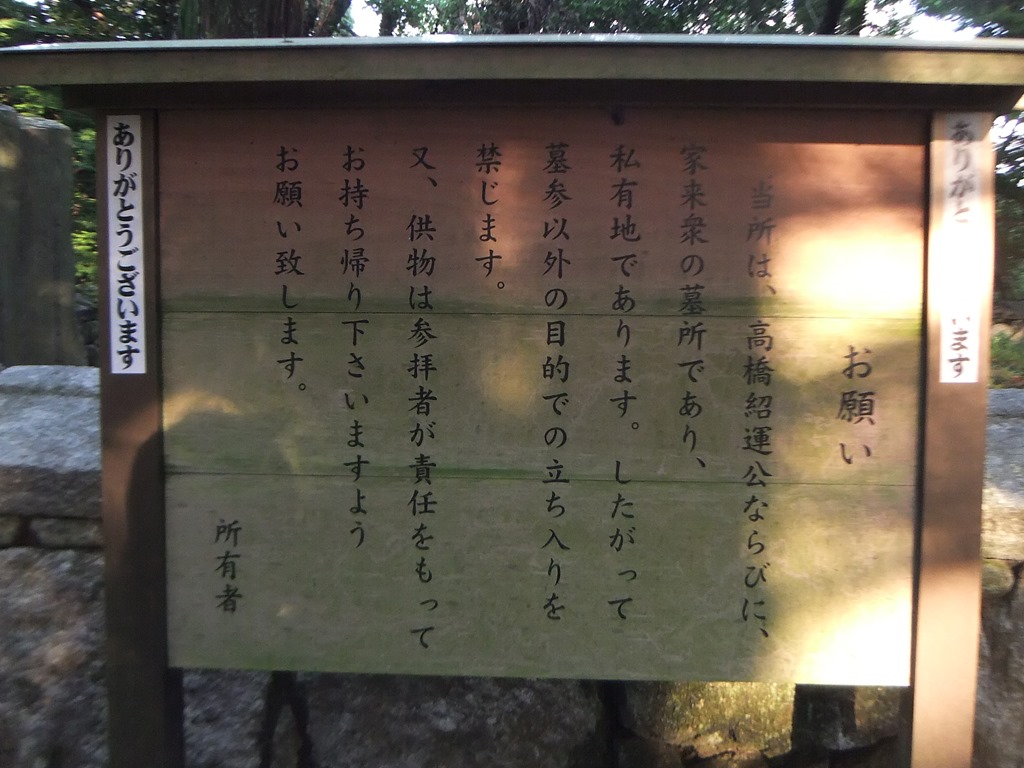 ありがと います
お願い
当所は、高橋紹運公ならびに、
家来衆の墓所であり、
私有地であります。したがって
墓参以外の目的での立ち入りを
禁じます。
又、供物は参拝者が責任をもって
お持ち帰り下さいますよう
お願い致します。
所有者
ありがとうございます